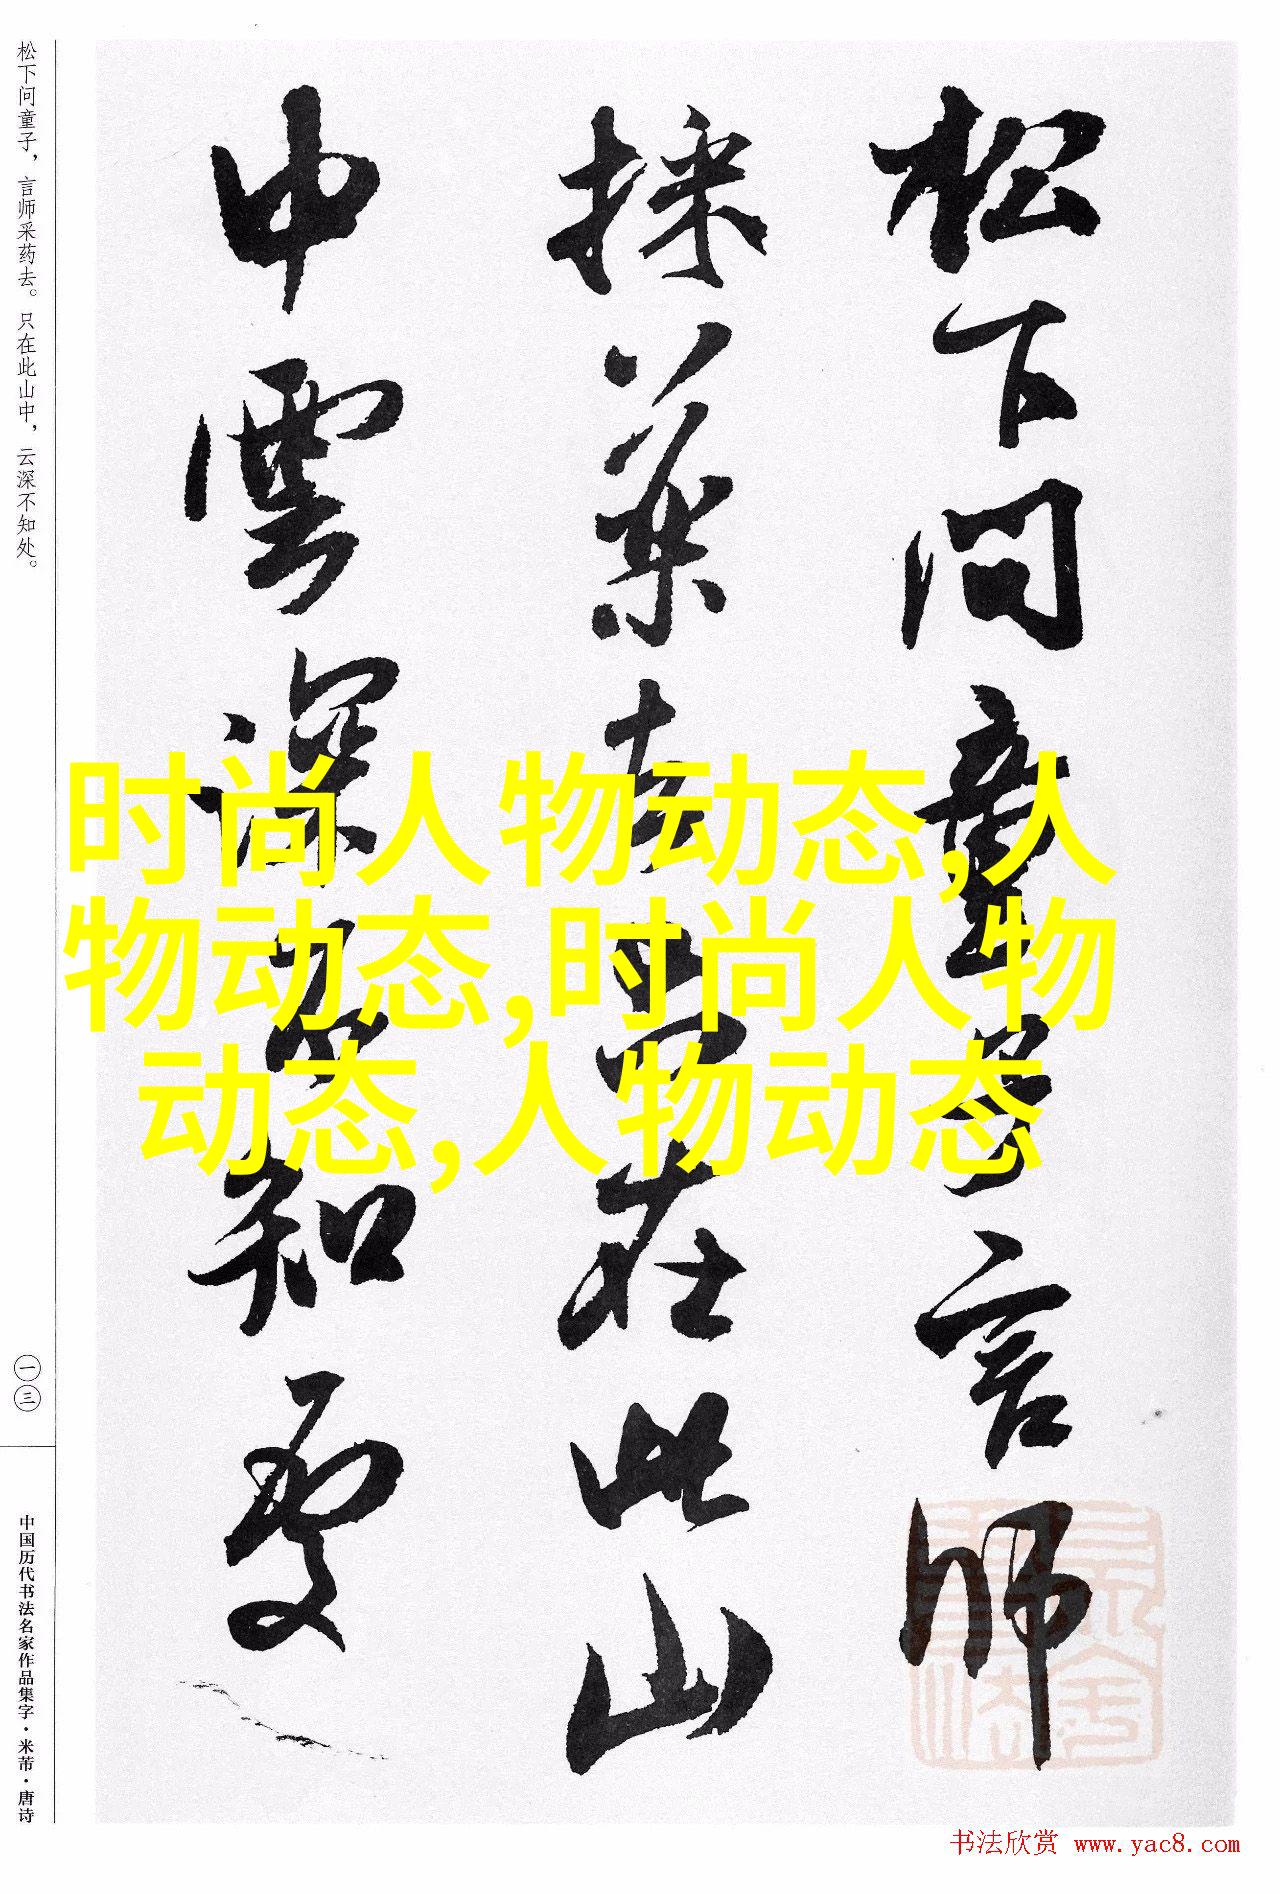 松下问童子，言师采药去。只在此山中，云深不知处。
一三
中国历代书法名家作品集字·米芾·唐诗
松下問童子言師
採藥去只在此山
中雲深不知處
时尚人物动态,人
物动态,时尚人物
动态,人物动态
书法欣赏 www.yac8.com